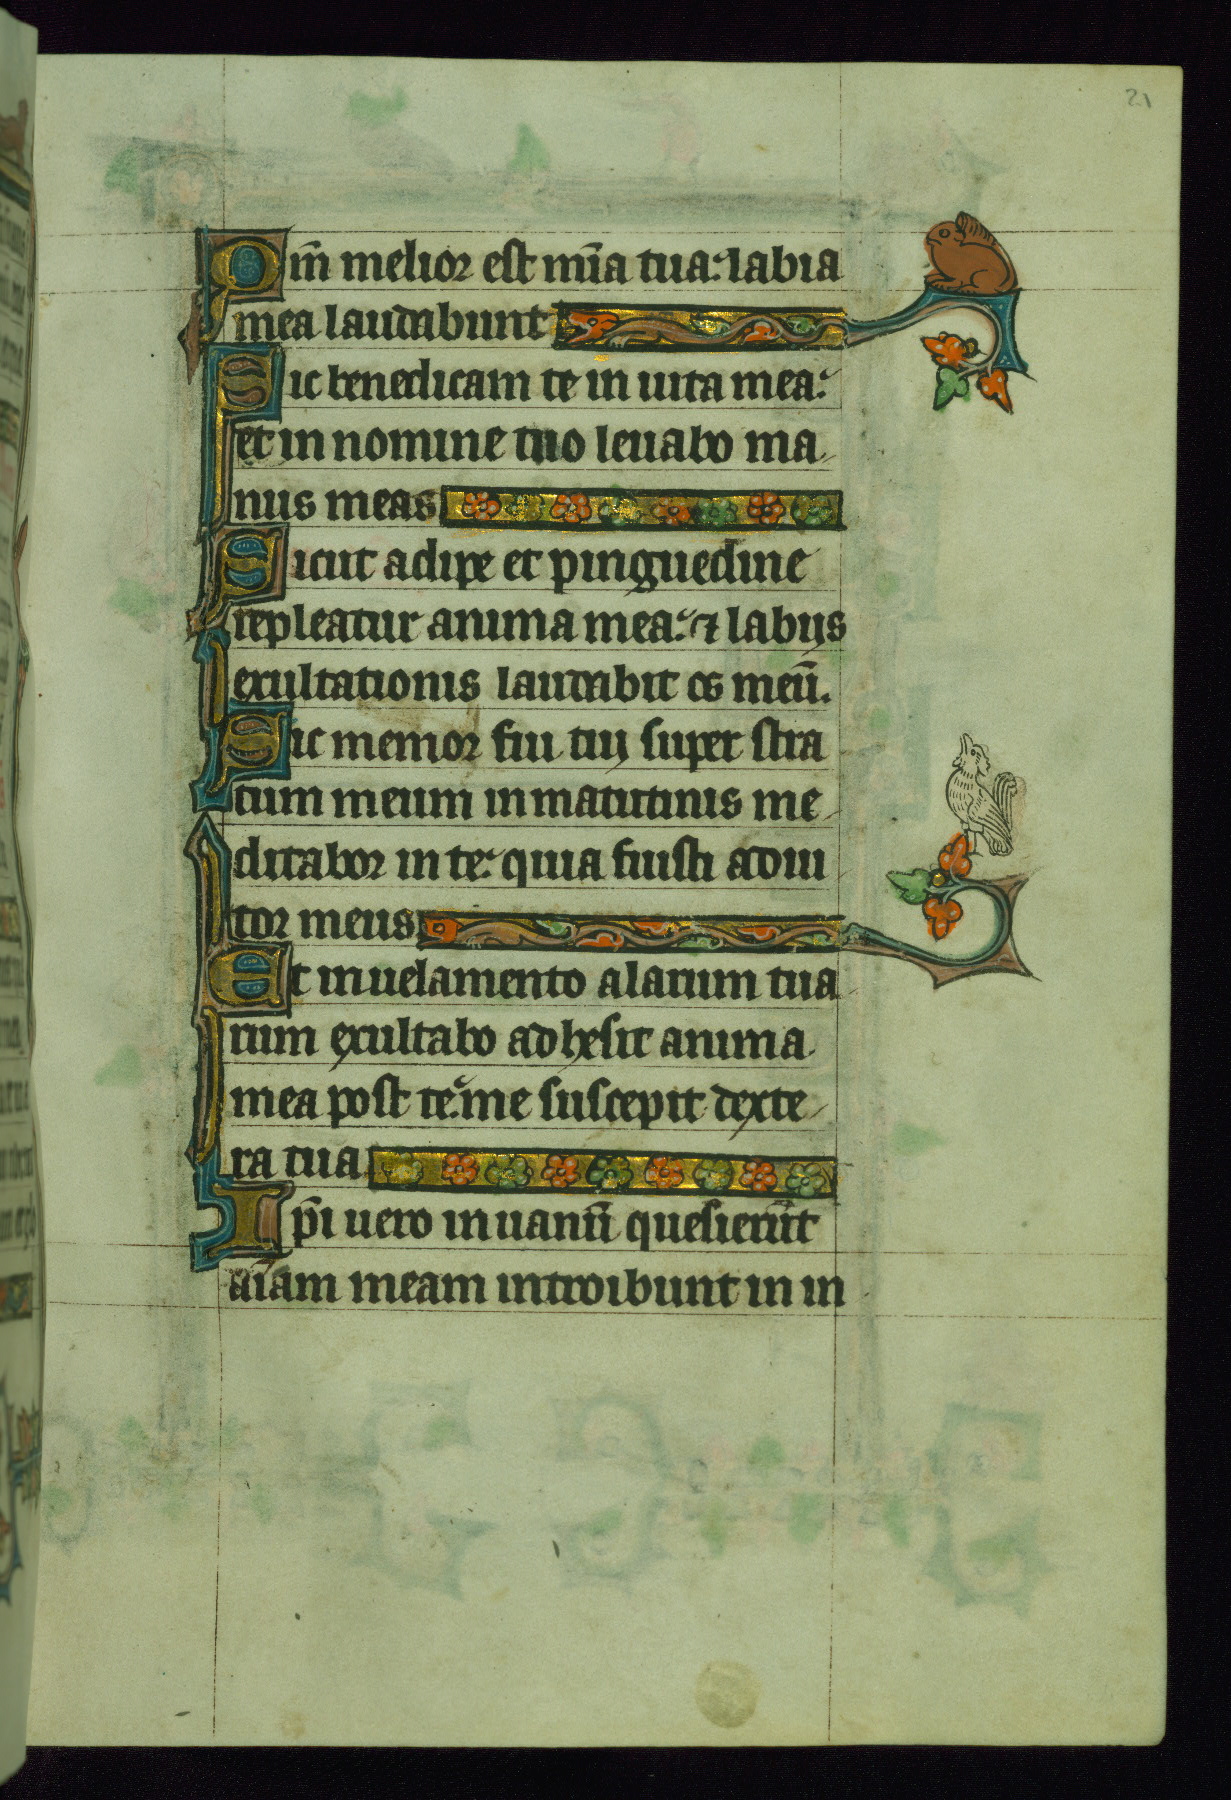 21
Qm̄ melior est mīa tua: labia
mea laudabunt
Sic benedicam te in uita mea:
et in nomine tuo leuabo ma
nus meas
Sicut adipe et pinguedine
repleatur anima mea: ⁊ labijs
exultationis laudabit os meū.
Sic memor fui tui super stra
tum meum in matutinis me
ditabor in te: quia fuisti adiu
tor meus
Et in uelamento alarum tua
rum exultabo adhesit anima
mea post te: me suscepit dexte
ra tua
Ip̄i uero in uanū quesierūt
aīam meam introibunt in in